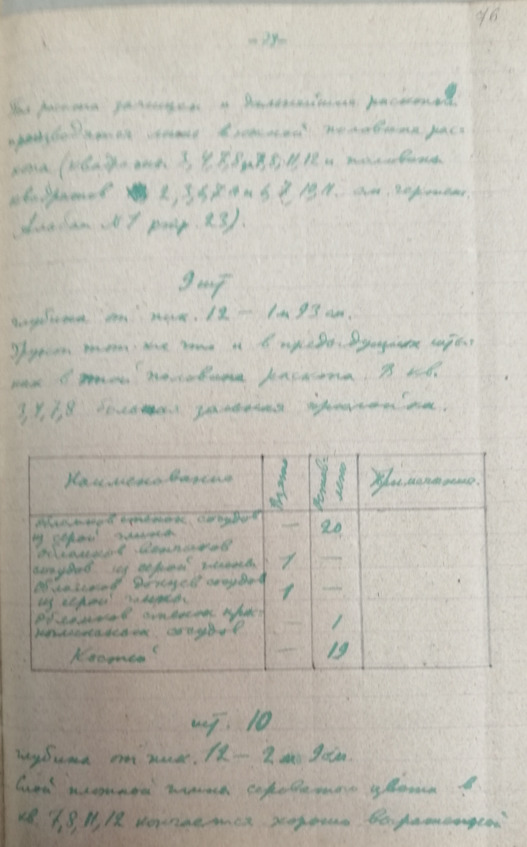 76
-39-
производятся лишь в южной половине рас-
копа (квадраты 3, 4, 7, 8, 11, 12 и половины
квадратов 2, 3, 6, 7, 10, 11. см. чертеж.
Альбом №1 стр. 23).
9 шт
глубина от ник. 12 — 1 м 93 см.
Грунт тот-же что и в предыдущих шты-
ках в этой половине раскопа. В кв.
3, 4, 7, 8 большая зольная прослойка.
Наименование Взято Остав-лено Примечание.
Обломков стенок сосудов
из серой глины — 20
Обломков венчиков
сосудов из серой глины 1 —
Обломков донцев сосудов
из серой глины 1 —
Обломков стенок кра-
сосудов — 1
Костей — 19
шт. 10
глубина от ник. 12 — 2 м 9 см.
Слой плотной глины сероватого цвета в
кв. 7, 8, 11, 12 кончается хорошо выраженной